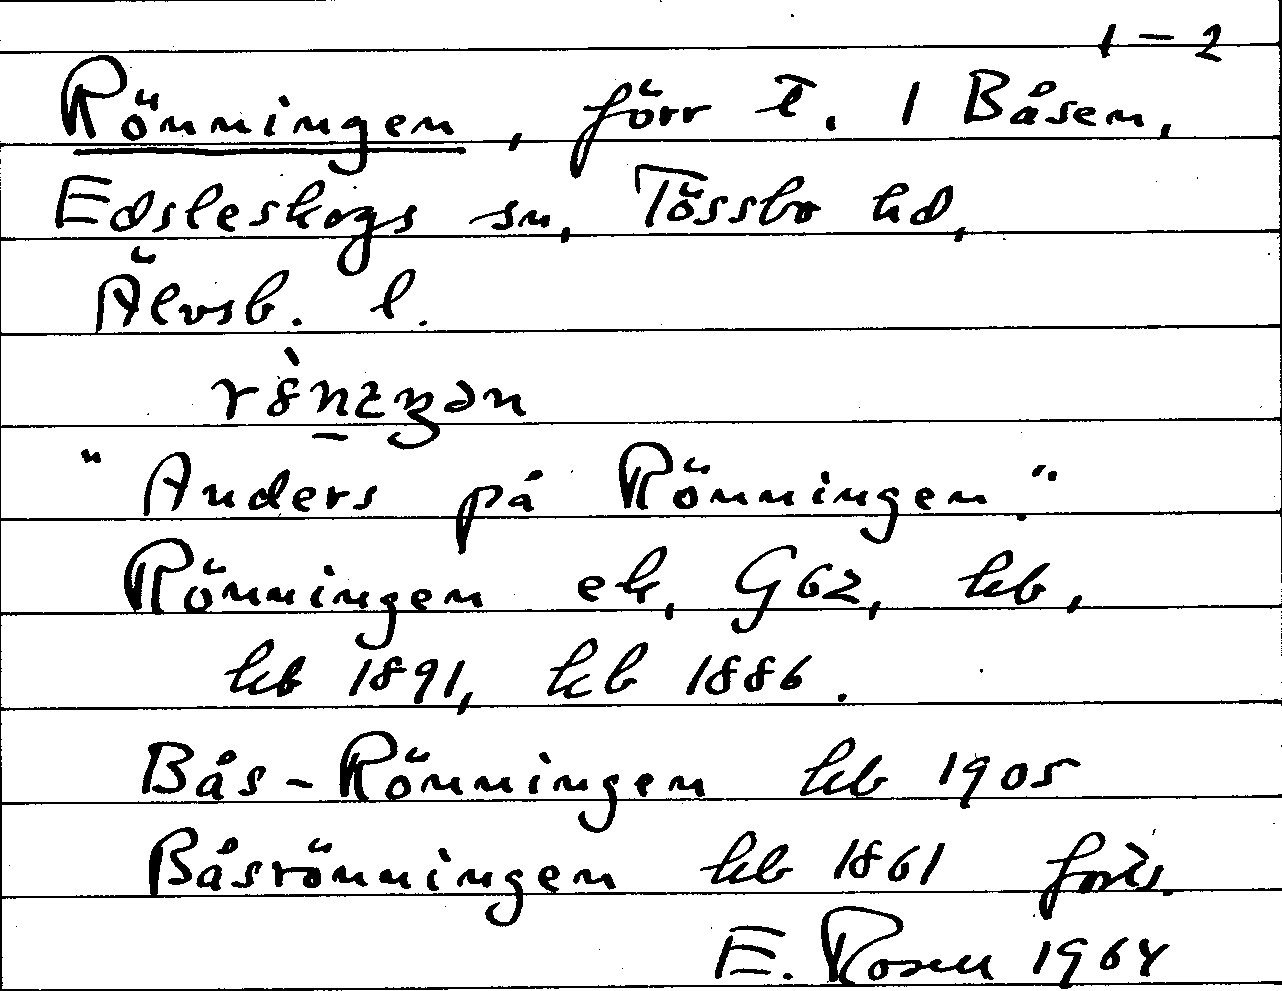 1 – 2
Rönningen, förr t. 1 Båsen,
Edsleskogs sn, Tössbo hd,
Älvsb. l.
"Anders på Rönningen."
Rönningen ek, G62, kb,
kb 1891, kb 1886.
Bås-Rönningen kb 1905
Båsrönningen kb 1861 forts.
E. Rosen 1964